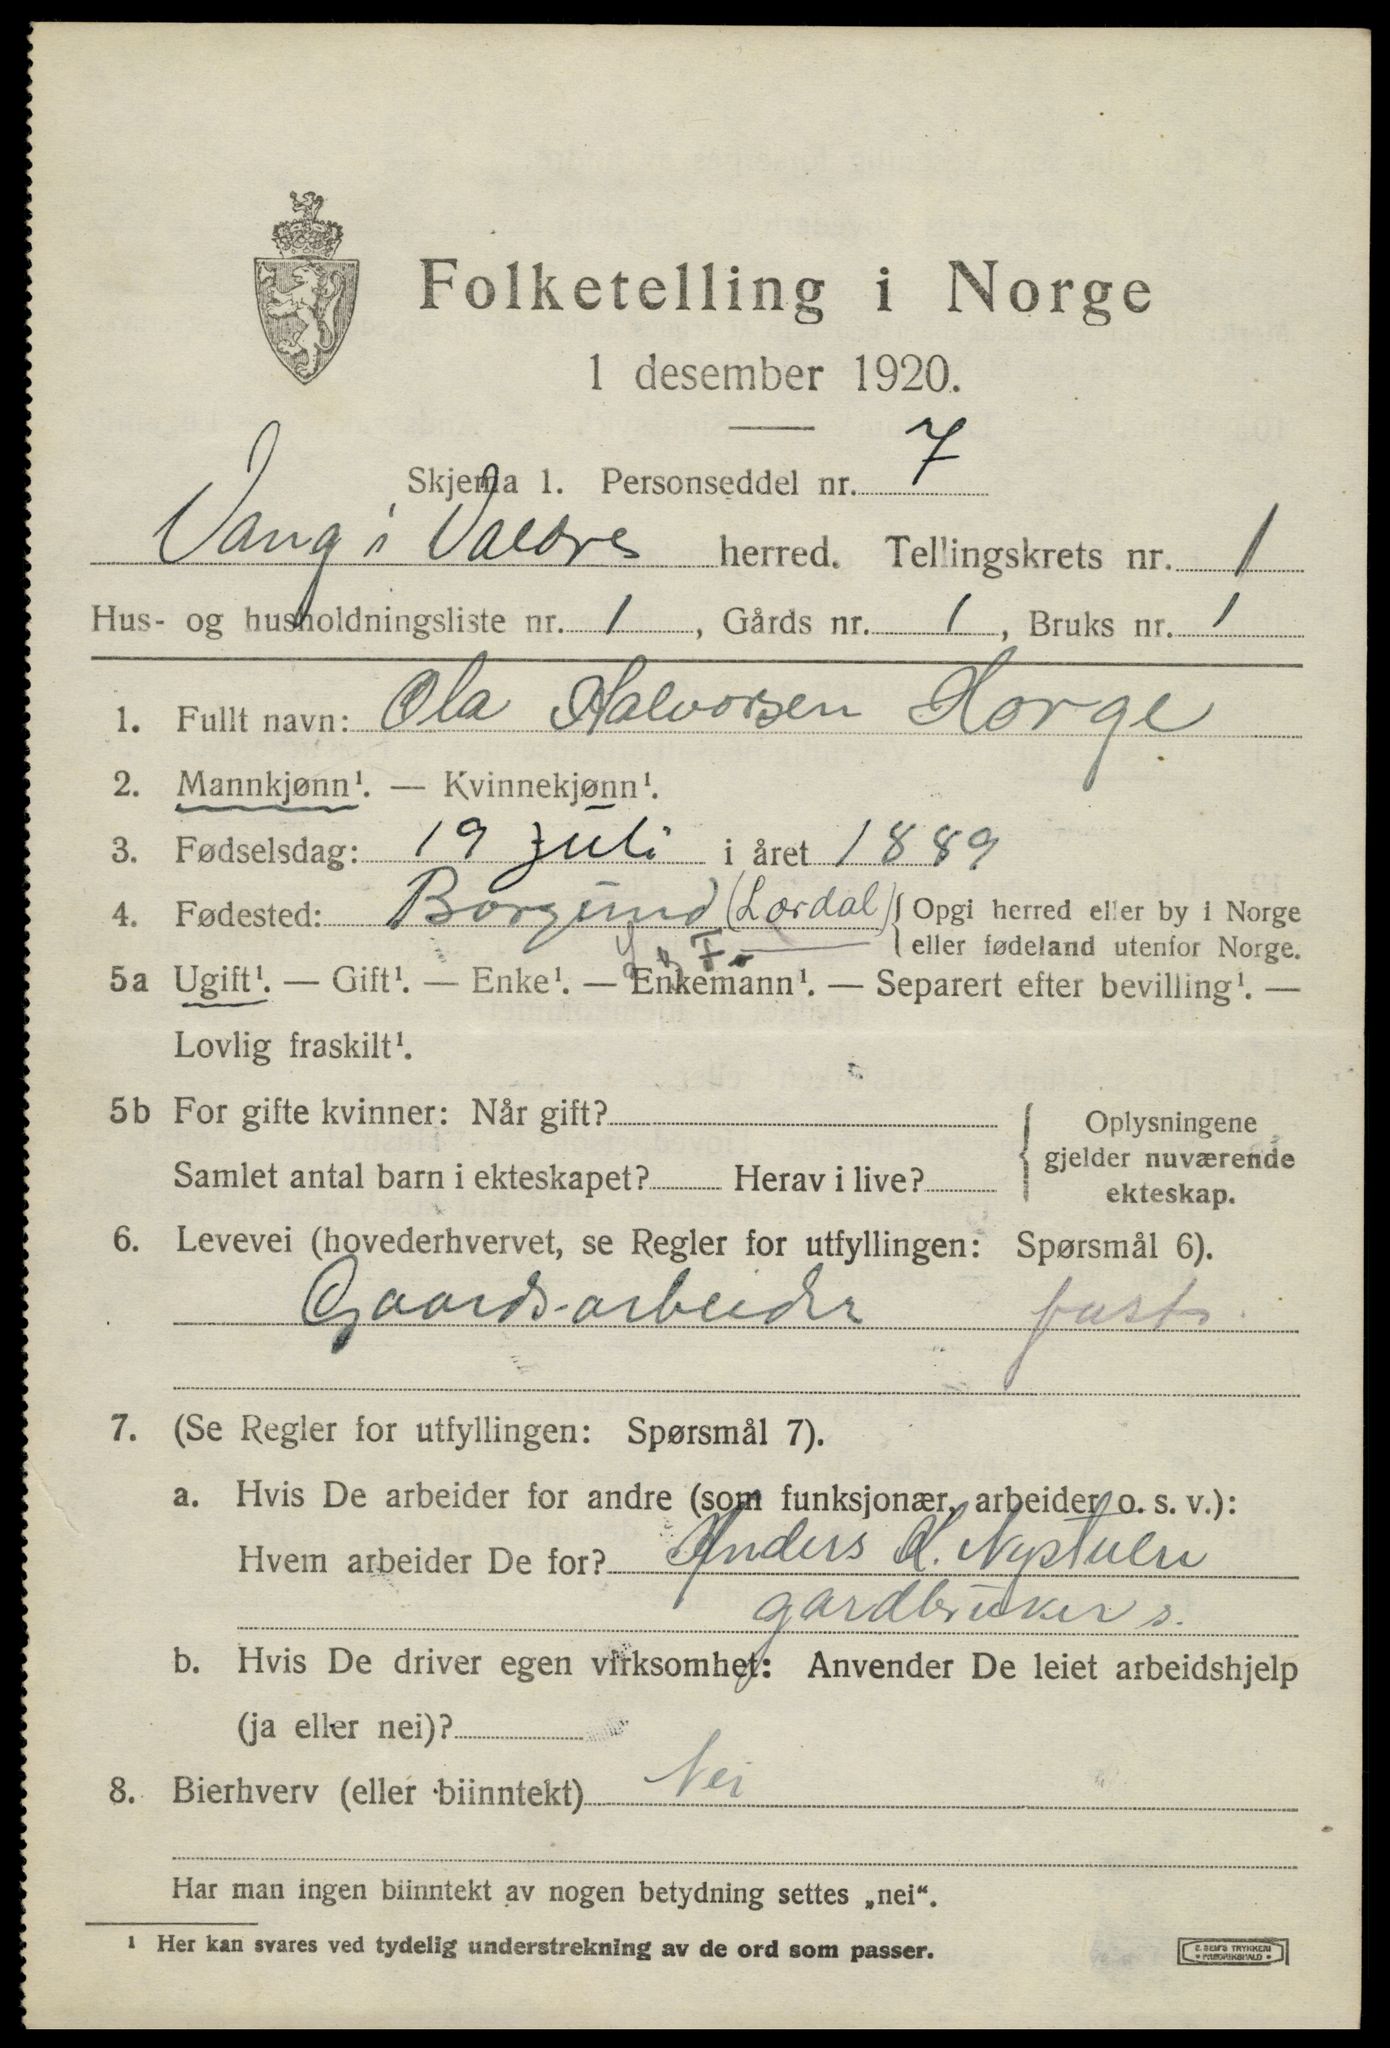 Folketelling i Norge
1 desember 1920.
Skjema 1. Personseddel nr. 7
Vang i Valdres herred. Tellingskrets nr. 1
Hus- og husholdningsliste nr. 1, Gårds nr. 1, Bruks nr. 1
1. Fullt navn: Ola Halvorsen Horge
2. Mannkjønn¹. — Kvinnekjønn¹.
3. Fødselsdag: 19 juli i året 1889
4. Fødested: Borgund (Lærdal) { Opgi herred eller by i Norge
eller fødeland utenfor Norge.
S og Fj
5a Ugift¹. — Gift¹. — Enke¹. — Enkemann¹. — Separert efter bevilling¹. —
Lovlig fraskilt¹.
5b For gifte kvinner: Når gift?
Samlet antal barn i ekteskapet? Herav i live?
{ Oplysningene
gjelder nuværende
ekteskap.
6. Levevei (hovederhvervet, se Regler for utfyllingen: Spørsmål 6).
Gaardsarbeider fast
7. (Se Regler for utfyllingen: Spørsmål 7).
a. Hvis De arbeider for andre (som funksjonær, arbeider o. s. v.):
Hvem arbeider De for? Anders K. Nystuen
gardbruker s.
b. Hvis De driver egen virksomhet: Anvender De leiet arbeidshjelp
(ja eller nei)?
8. Bierhverv (eller biinntekt) Nei
Har man ingen biinntekt av nogen betydning settes „nei“.
¹ Her kan svares ved tydelig understrekning av de ord som passer.
E. SEM'S TRYKKERI
• FREDRIKSHALD •